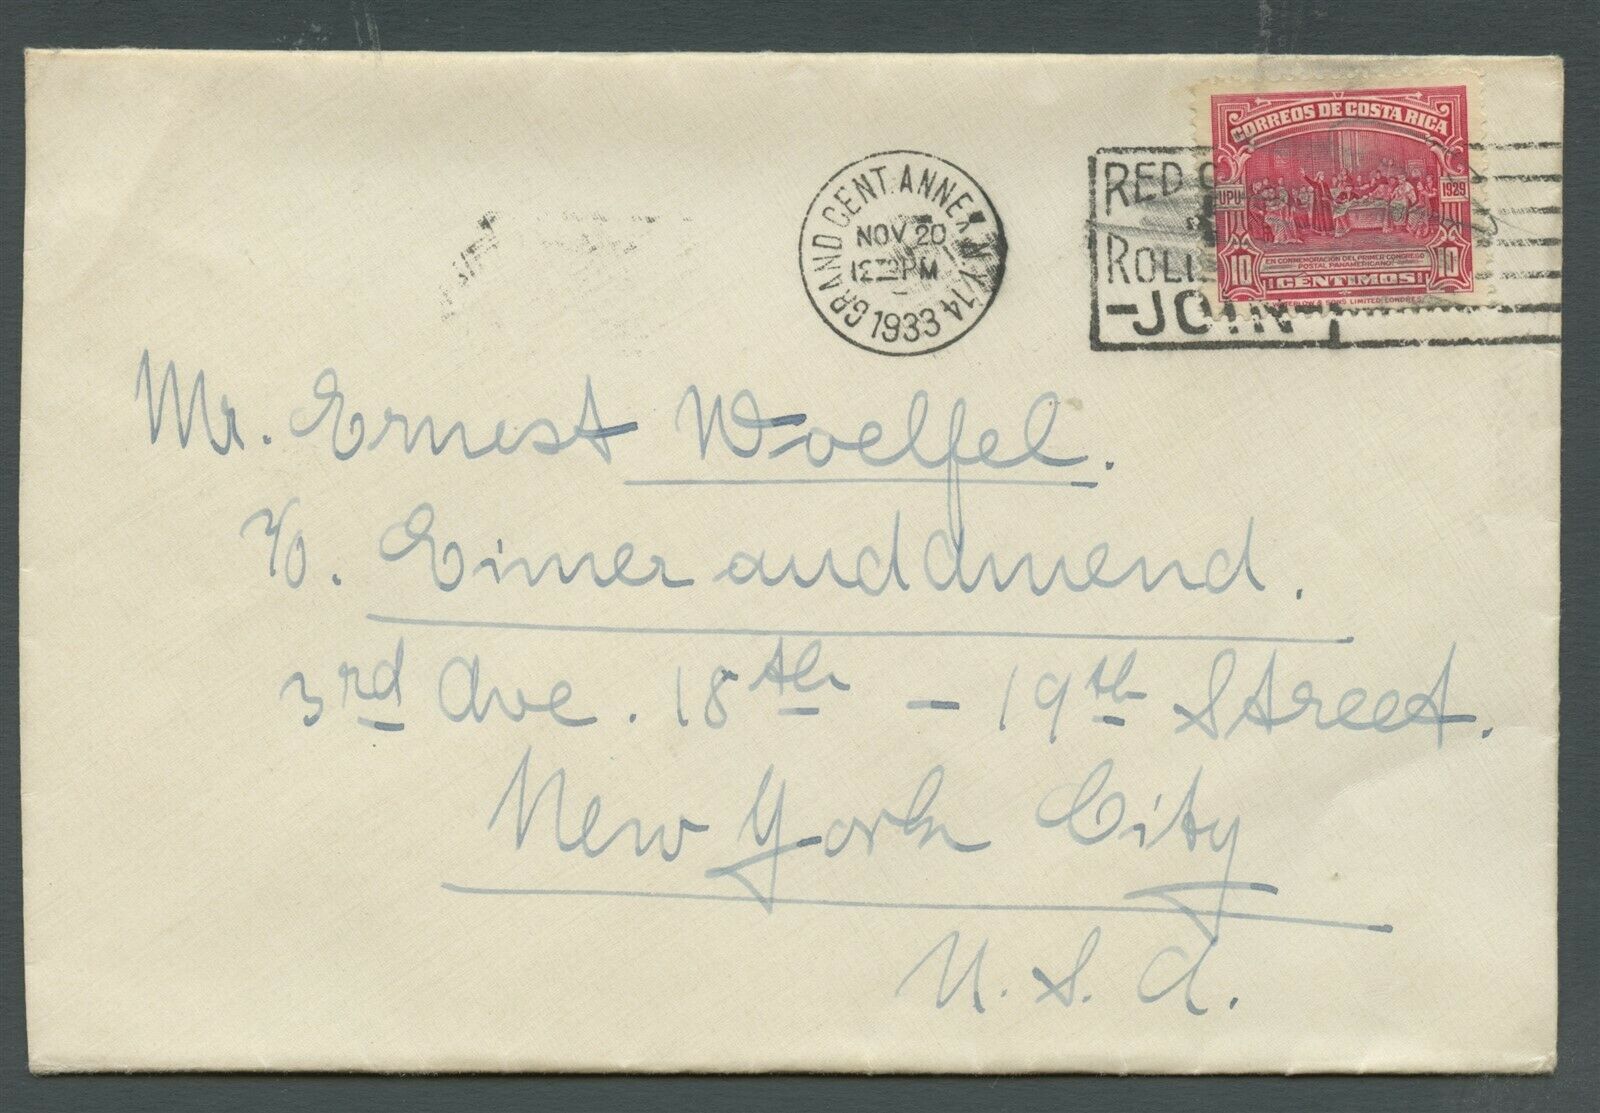 CORREOS DE COSTA RICA
UPU 1929
EN CONMEMORACION DEL PRIMER CONGRESO
POSTAL PANAMERICANO
10 CÉNTIMOS 10
WATERLOW & SONS LIMITED, LONDRES.
GRAND CENT. ANNEX N.Y.
NOV 20
12 30 PM
1933
14
RED
ROLL
-JOIN-
Mr. Ernest Woelfel.
℅. Eimer and Amend.
3rd Ave. 18th - 19th Street.
New York City
U. S. A.